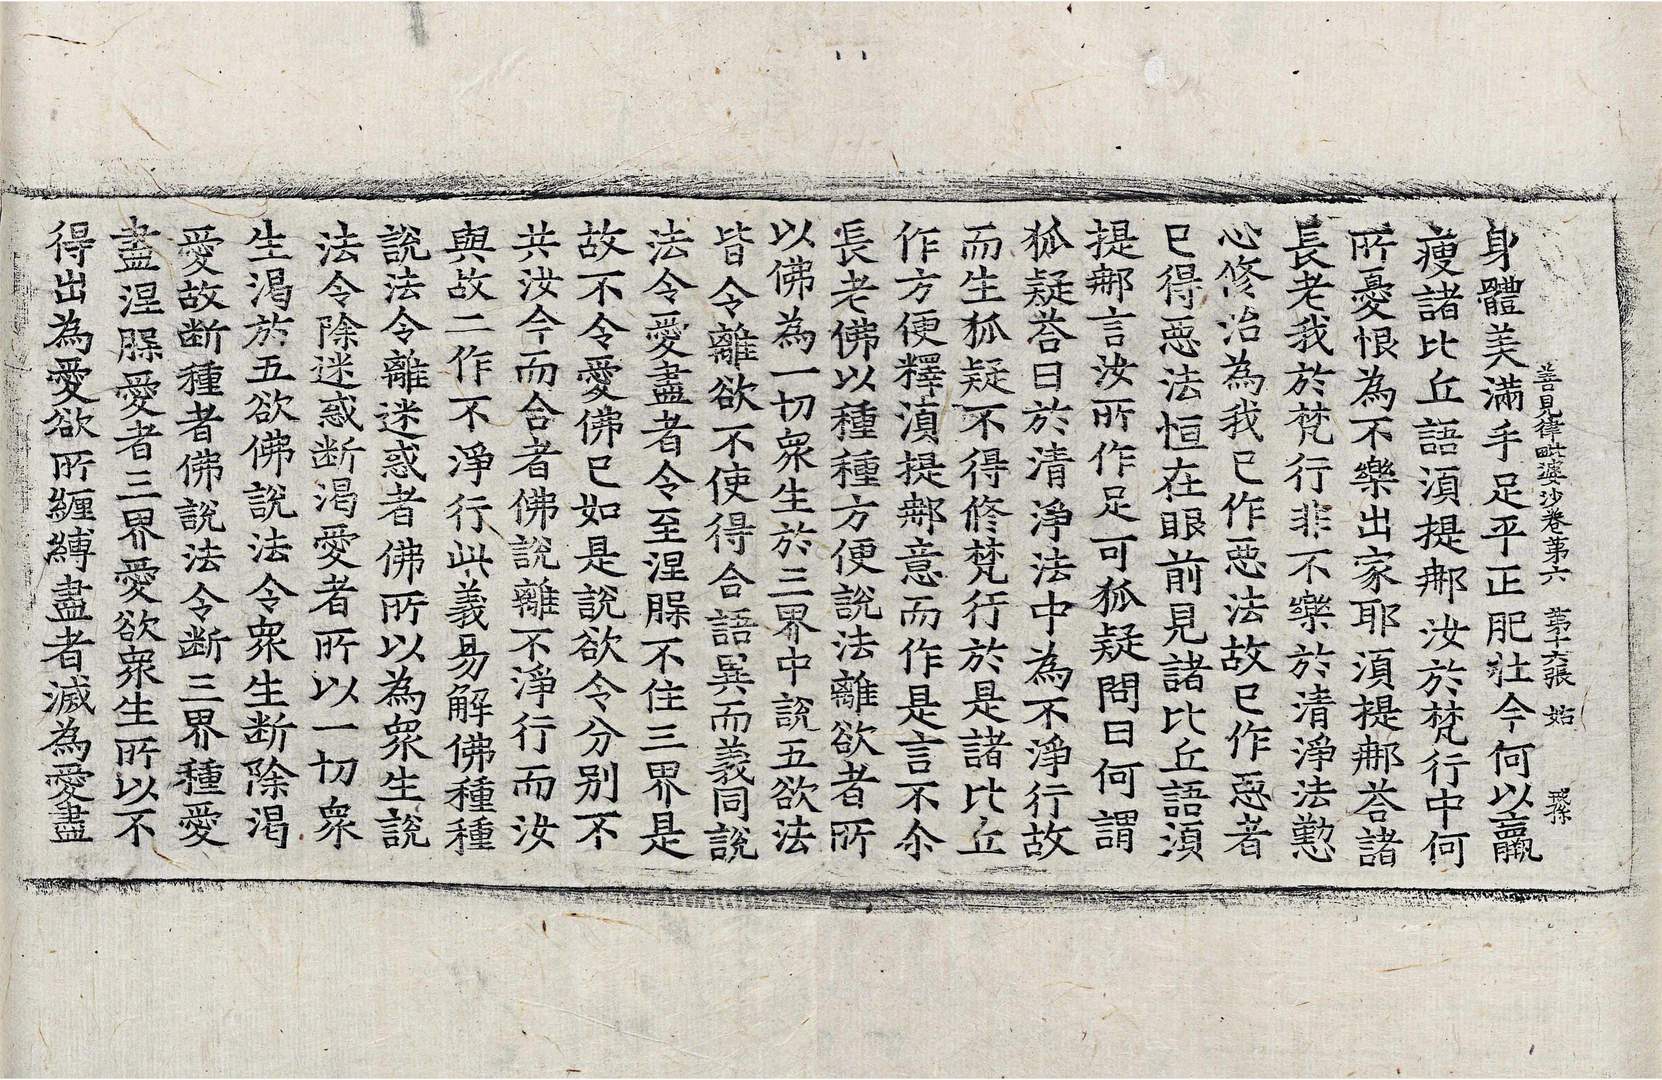 善見律毗婆沙卷第六 第十六張 姑 琛
身體美滿手足平正肥壯今何以羸
瘦諸比丘語湏提䣑汝於梵行中何
所憂恨為不樂出家耶湏提䣑荅諸
長老我於梵行非不樂於清淨法懃
心修治為我已作惡法故已作惡者
已得惡法恒在眼前見諸比丘語湏
提䣑言汝所作足可狐疑問曰何謂
狐疑荅曰於清淨法中為不淨行故
而生狐疑不得修梵行於是諸比丘
作方便釋湏提䣑意而作是言不尒
長老佛以種種方便說法離欲者所
以佛為一切衆生於三界中說五欲法
皆令離欲不使得合語異而義同說
法令愛盡者令至涅槃不住三界是
故不令愛佛已如是說欲令分別不
共汝今而合者佛說離不淨行而汝
與故二作不淨行此義易解佛種種
說法令離迷惑者佛所以為衆生說
法令除迷惑断渴愛者所以一切衆
生渴於五欲佛說法令衆生断除渴
愛故断種者佛說法令断三界種愛
盡涅槃愛者三界愛欲衆生所以不
得出為愛欲所纏縛盡者滅為愛盡